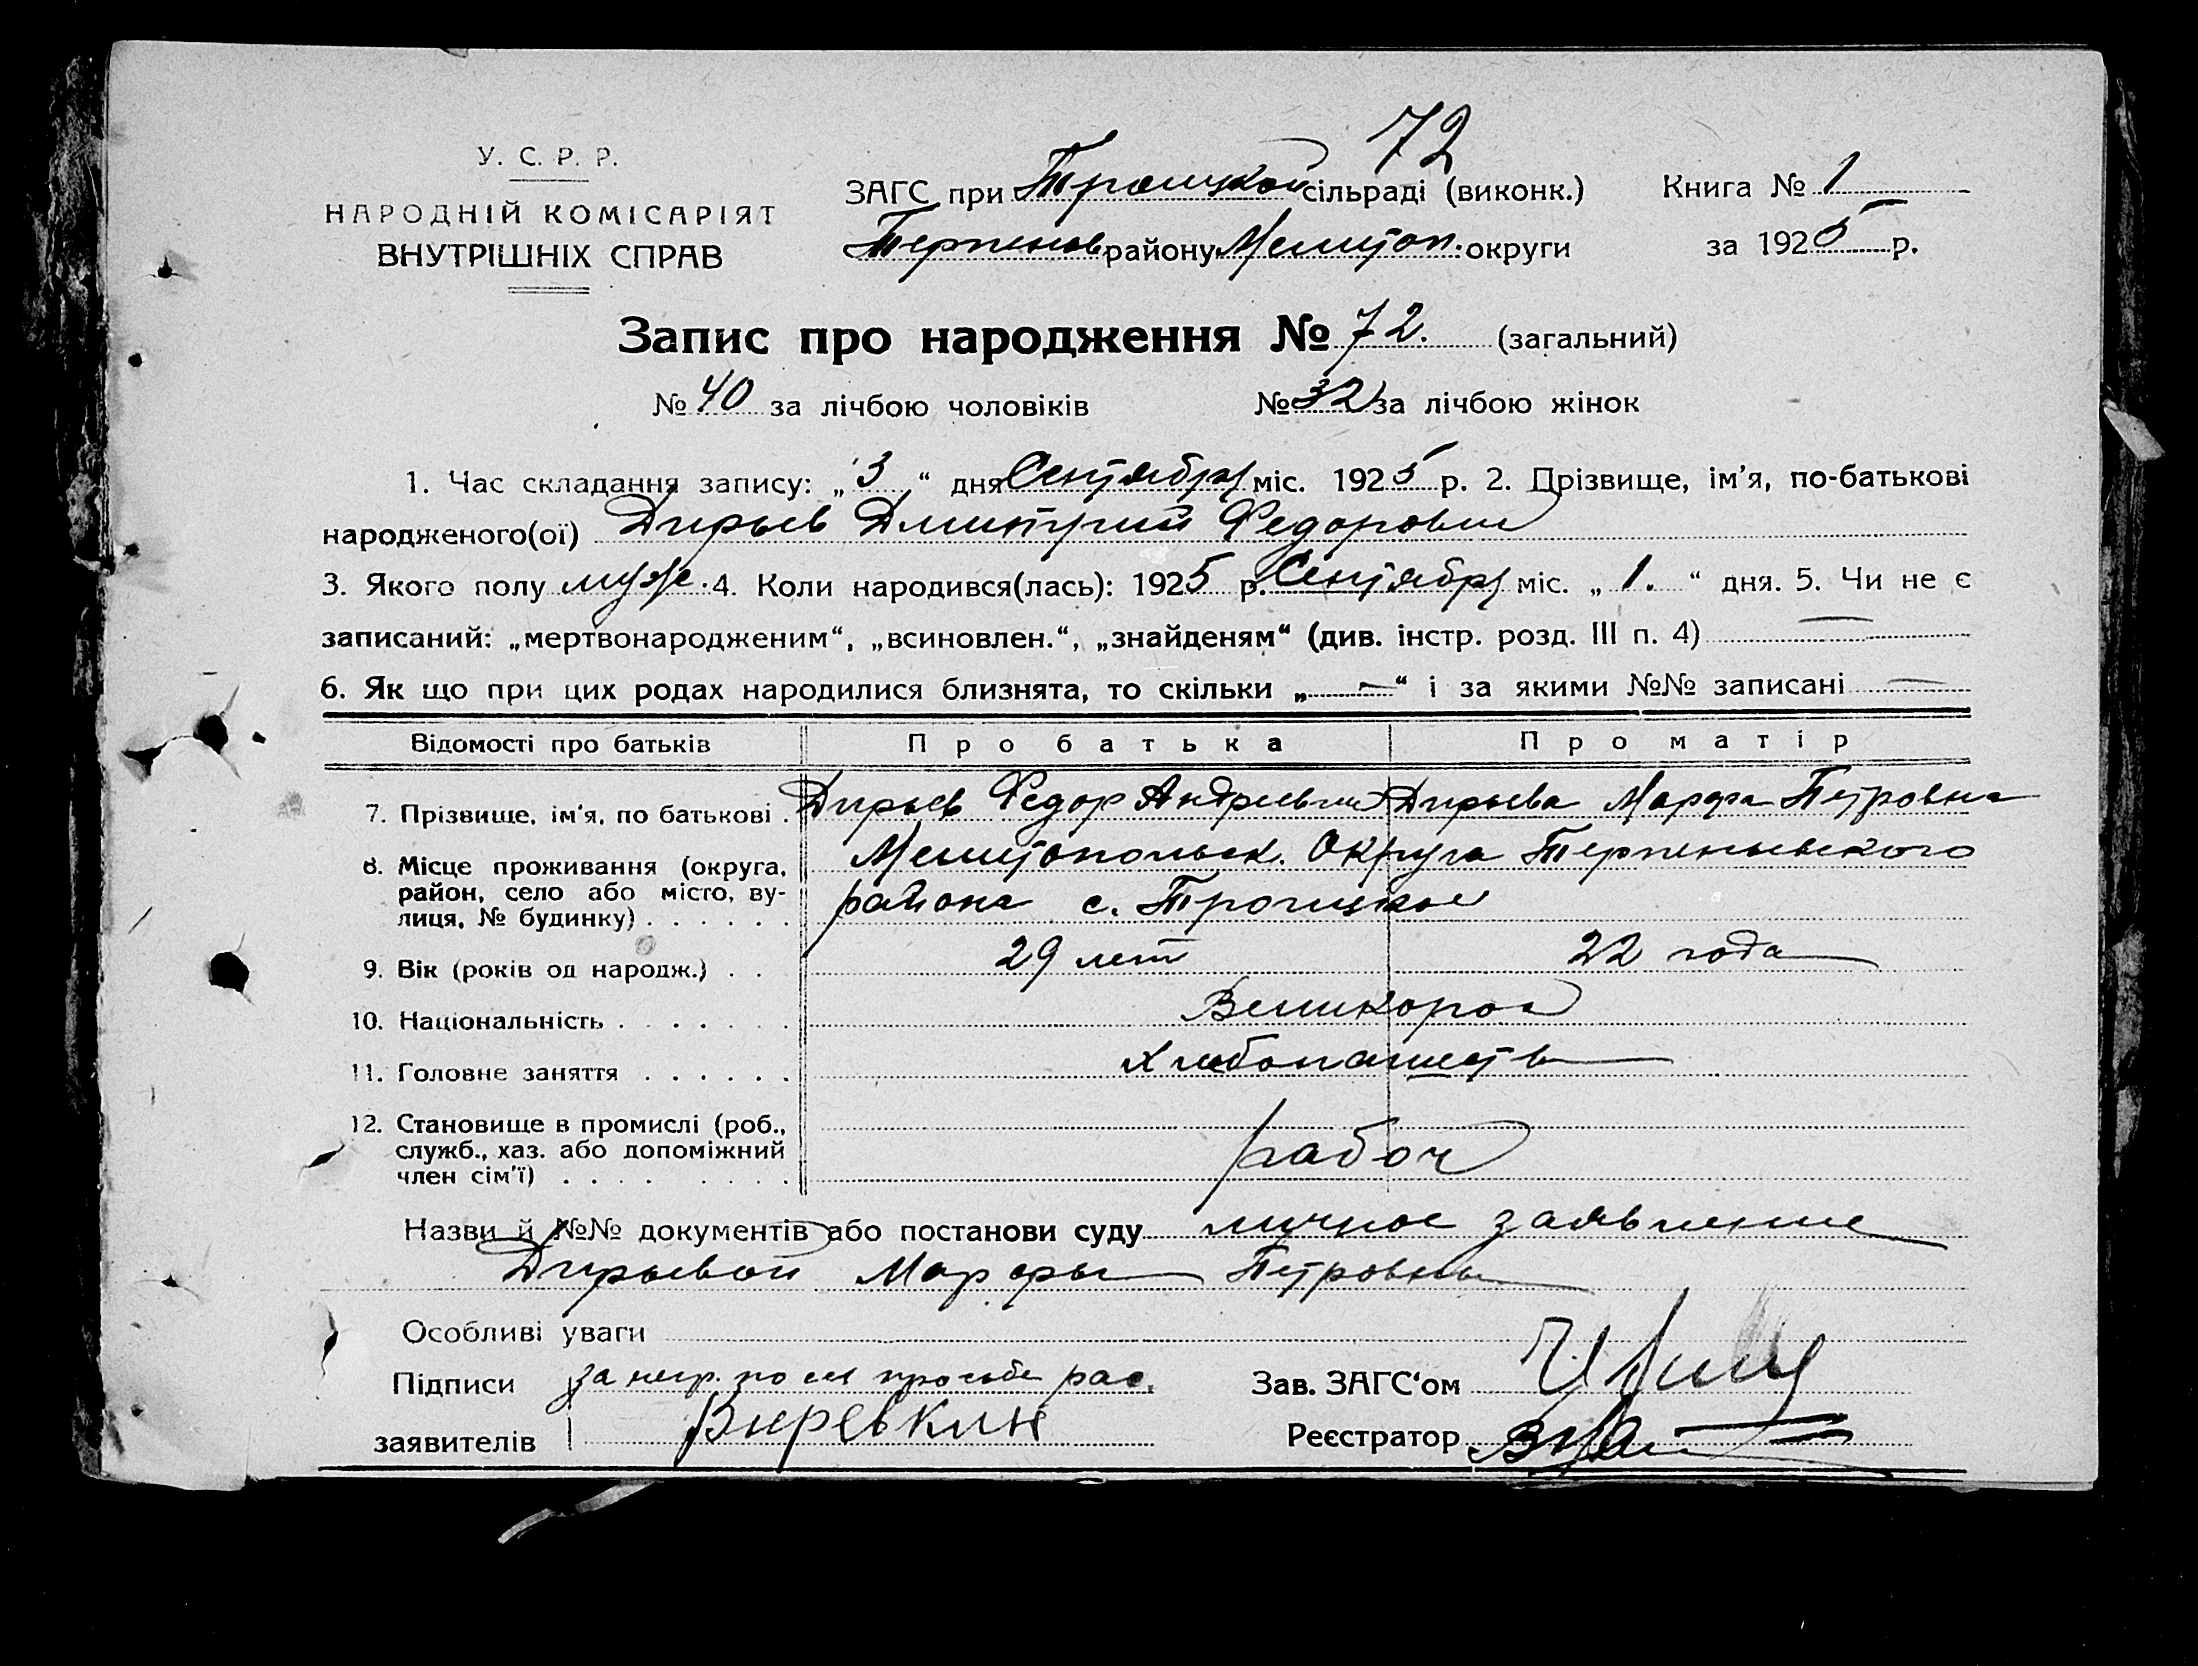 72
У. С. Р. Р.
НАРОДНІЙ КОМІСАРІЯТ
ВНУТРІШНІХ СПРАВ
ЗАГС при Троицкой сільраді (виконк.)
Терпенов району Мелитоп. округи
Книга № 1
за 1925 р.
Запис про народження № 72. (загальний)
№ 40 за лічбою чоловіків № 32 за лічбою жінок
1. Час складання запису: „3“ дня Сентября міс. 1925 р. 2. Прізвище, ім’я, по-батькові
народженого(ої) Дирьев Дмитрий Федорович
3. Якого полу муж. 4. Коли народився(лась): 1925 р. Сентября міс. „1.“ дня. 5. Чи не є
записаний: „мертвонародженим“, „всиновлен.“, „знайденям“ (див. інстр. розд. III п. 4) —
6. Як що при цих родах народилися близнята, то скільки „—“ і за якими №№ записані —
Відомості про батьків Про батька Про матір
7. Прізвище, ім’я, по батькові . Дирьев Федор Андреевич Дирьева Марфа Петровна
8. Місце проживання (округа, район, село або місто, вулиця, № будинку) . . . . . . Мелитопольск. Округа Терпеньевского
района с. Троицкое
9. Вік (років од народж.) . . 29 лет 22 года
10. Національність . . . . . . . Великорос
11. Головне заняття . . . . . . Хлебопашеств
12. Становище в промислі (роб.,
служб., хаз. або допоміжний
член сім’ї) . . . . . . . . рабоч
Назви й №№ документів або постанови суду личное заявление
Дирьевой Марфы Петровны
Особливі уваги
Підписи за негр. по ея просьбе рас.
заявителів
Зав. ЗАГС‘ом
Реєстратор